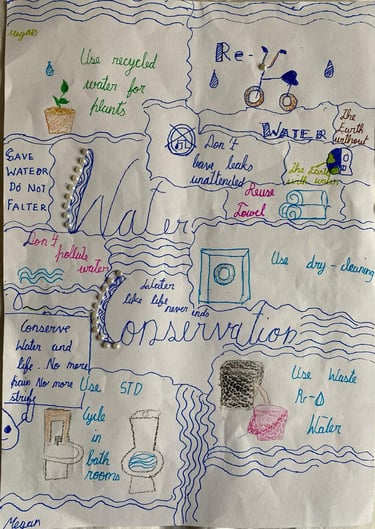 Megan
Use recycled
water for
plants
Re-
WATER
The
Earth
without
Don't
leave leaks
unattended
The Earth
with water
SAVE
WATEOR
DO NOT
FALTER
Water
Reuse
Towel
Don't
pollute
water
Use dry-cleaning
Water
like life
never ends
Conservation
Conserve
Water and
life. No more
pain No more
strife
Use STD
cycle
in
bath
rooms
Use Waste
R-O
Water
Megan